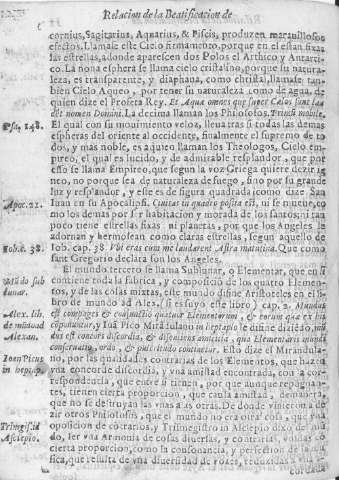 Relacion de la Beatificacion de
cornius, Sagitarius, Aquarius, & Piscis, produzen marauillosos
efectos. Llamase este Cielo firmamento, porque en el estan fixas
las estrellas, adonde aparescen dos Polos el Arthico y Antarti-
co. La nona esphera se llama cielo cristalino, porque su natura-
leza, es transparente, y diaphana, como christal, llamase tam-
bien Cielo Aqueo, por tener su naturaleza como de agua, de
quien dize el Profeta Rey. Et Aquæ omnes quæ super Cælos sunt lau
Psa. 148.
dēt nomen Domini. La decima llaman los Philosofos, Primū mobile.
El qual con su mouimiento veloz, lleua tras si todas las demas
espheras del oriente al occidente, finalmente el supremo de to-
dos, y mas noble, es aquien llaman los Theologos, Cielo em-
pireo, el qual es lucido, y de admirable resplandor, que por
esso se llama Empireo, que segun la voz Griega quiere dezir ig-
neo, no porque sea de naturaleza de fuego, sino por su grande
luz y resplandor, y este es de figura quadrada como dize San
Apoc. 21.
Iuan en su Apocalipsi. Ciuitas in quadro posita est, ni se mueue, co
mo los demas por ser habitacion y morada de los santos; ni tam
poco tiene estrellas fixas ni planetas, por que los Angeles le
adornan y hermosean como claras estrellas, segun aquello de
Iob. c. 38.
Iob. cap. 38. Vbi eras cum me laudarent Astra matutina. Que como
sant Gregorio declara son los Angeles.
El mundo tercero se llama Sublunar, o Elementar, que en si
Mūdo sub
lunar.
contiene toda la fabrica, y composiciō de los quatro Elemen-
tos, y de las cosas mixtas, este mundo dize Aristoteles en el li-
bro de mundo ad Alex. (si es suyo este libro) cap. 2. Mundus
Alex. lib.
de mūdo ad
Alexan.
est compages & coniunctio quatuor Elementorum, & eorum quæ ex his
cōponuntur, y Iuā Pico Mirādulano in heptaplo le difine diziēdo, mū
dus est concors discordia, & disiuncta amicitia, qua Elementaris mundi
conseruatur, ordo, & pulchritudo continetur. Esto dize el Mirandula-
Ioan Picus
in heptap.
no, por las qualidades contrarias de los Elementos, que haze
vna concorde discordia, y vna amistad encontrada, con la co-
rrespondencia, que entre si tienen, por que aunque repugnan-
tes, tienen cierta proporcion, que causa amistad, de manera,
que no se destruyen las vnas a las otras. De donde vinieron a de-
zir otros Philosofos, que el mundo no era otra cosa, que vna
Trimegist. in
Asclepio.
oposicion de contrarios, y Trismegistro in Asclepio dixo del mū-
do, ser vna Armonia de cosas diuersas, y contrarias, vnidas cō
cierta proporcion, como la consonancia, y perfection de la mu
sica, que resulta de vna diuersidad de vozes, reduzidas a vna cō-
cordada